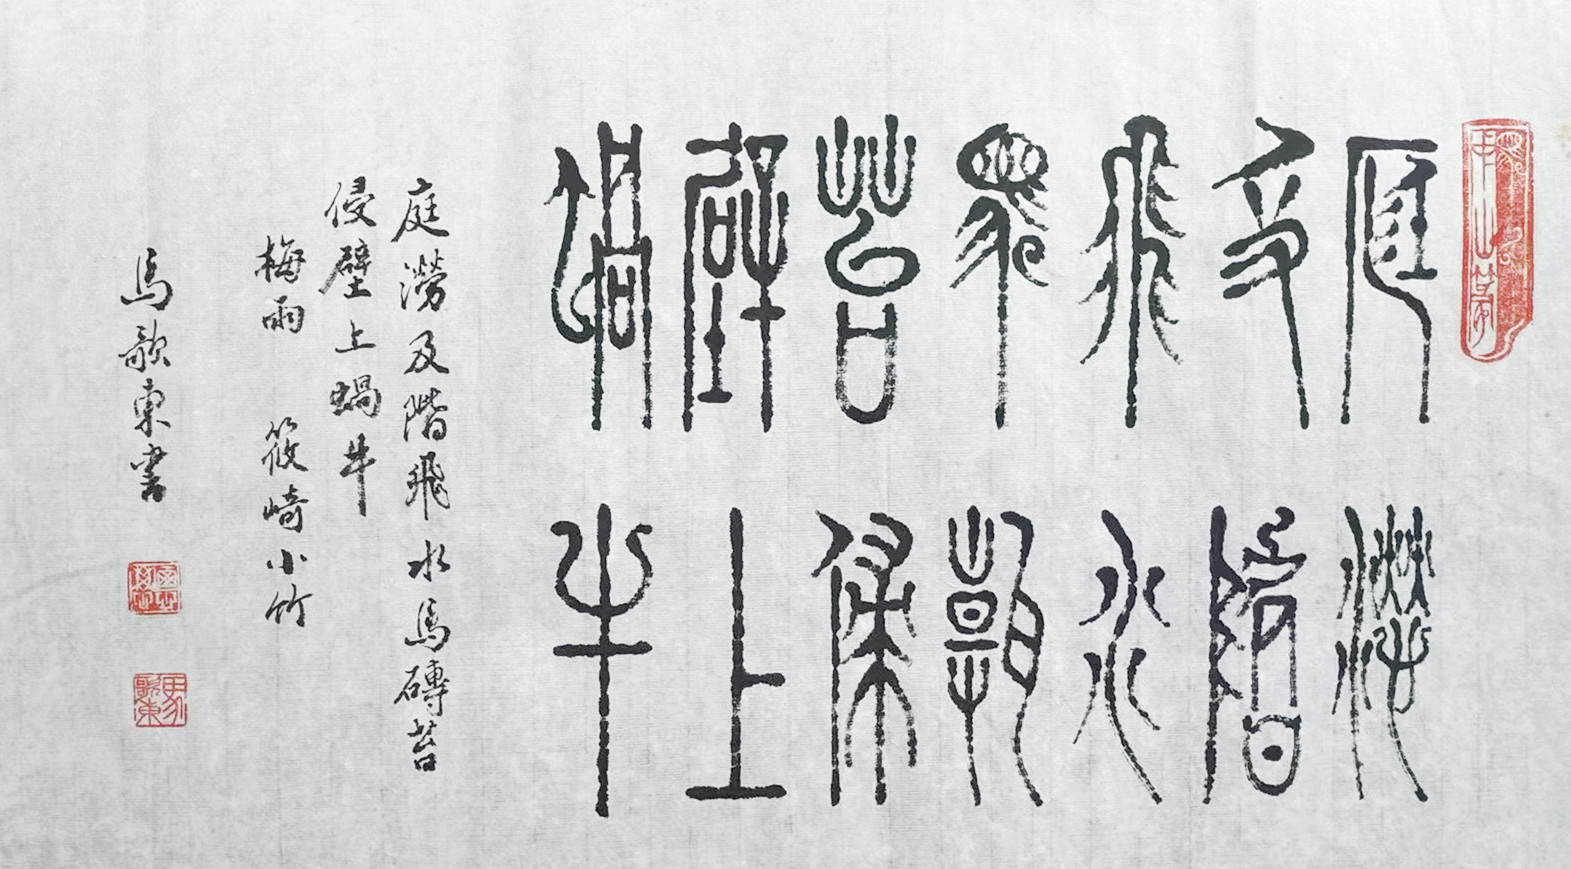 庭澇
及階
飛水
馬磚
苔侵
壁上
蝸牛
庭澇及階飛水馬磚苔
侵壁上蝸牛
梅雨 筱崎小竹
馬歌東書